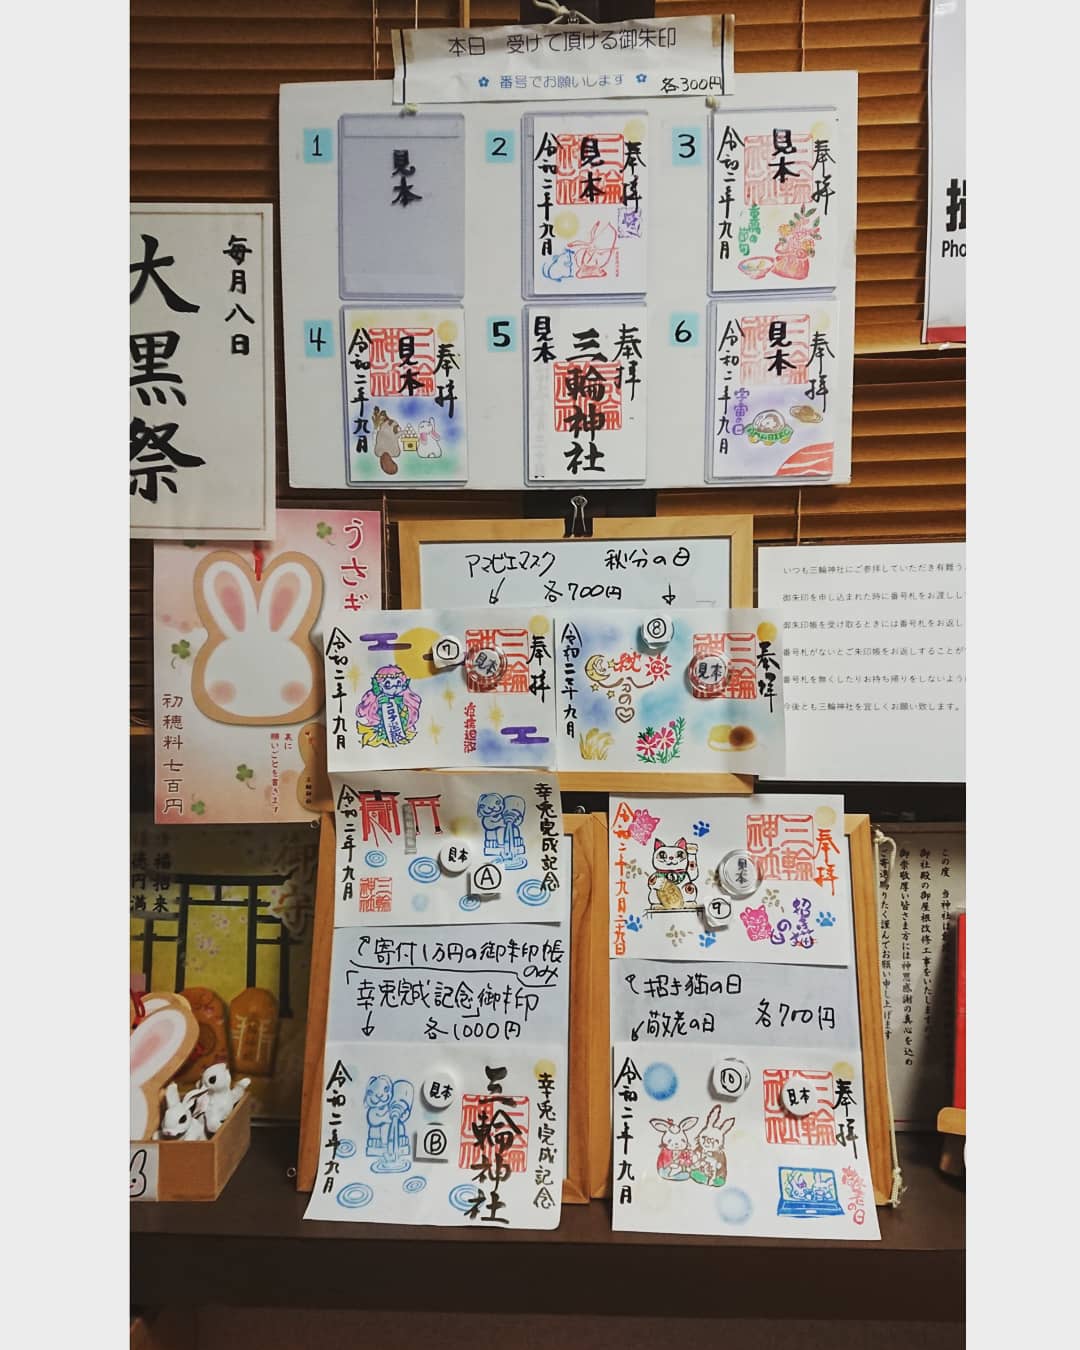 本日 受けて頂ける御朱印
番号でお願いします
各300円
1
見本
2
奉拝
見本
三輪神社
令和二年九月
3
奉拝
見本
三輪神社
重陽の節句
令和二年九月
4
奉拝
見本
三輪神社
令和二年九月
5
奉拝
三輪神社
見本
6
奉拝
見本
三輪神社
宇宙の日
令和二年九月
毎月八日
大黒祭
Pho
うさぎ
初穂料七百円
裏に
願いごとを書きます
アマビエマスク 秋分の日
各700円
奉拝
三輪神社
見本
⑦
疫病退散
令和二年九月
奉拝
三輪神社
見本
⑧
秋分の
令和二年九月
いつも三輪神社にご参拝していただき有難う
御朱印を申し込まれた時に番号札をお渡しし
御朱印帳を受け取るときには番号札をお返し
番号札がないとご朱印帳をお返しすることが
番号札を無くしたりお持ち帰りをしないように
今後とも三輪神社を宜しくお願い致します。
幸兎完成記念
見本
Ⓐ
三輪神社
令和二年九月
寄付1万円の御朱印帳
のみ
「幸兎完成記念」御朱印
各1000円
幸兎完成記念
三輪神社
見本
Ⓑ
令和二年九月
奉拝
三輪神社
見本
⑨
招き猫の日
令和二年九月二十九日
招き猫の日
敬老の日
各700円
奉拝
三輪神社
見本
⑩
令和二年九月
御守
福招来
円満
この度 当神社は
御社殿の御屋根改修工事をいたします。
御崇敬厚い皆さま方には神恩感謝の真心を込め
ご寄進賜りたく謹んでお願い申し上げます